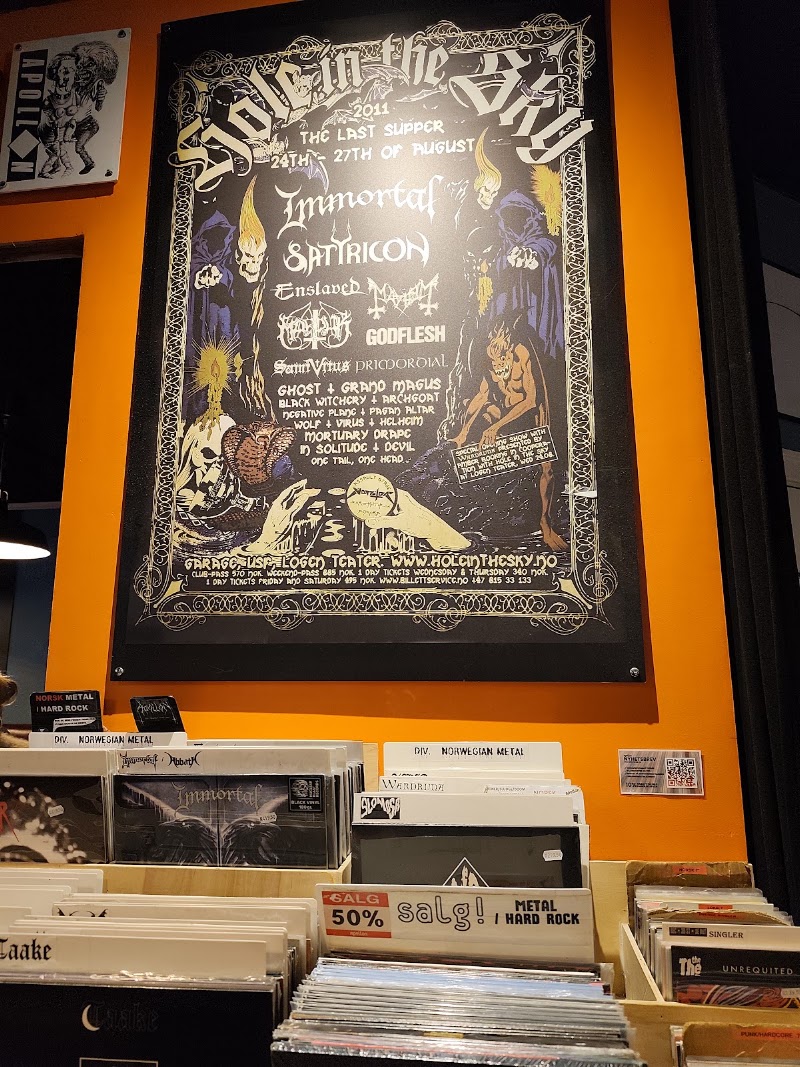 APOLLON
Hole in the Sky
2011
THE LAST SUPPER
24TH - 27TH OF AUGUST
Immortal
SATYRICON
Enslaved MAYHEM
MARDUK GODFLESH
Saint Vitus PRIMORDIAL
GHOST + GRAND MAGUS
BLACK WITCHERY + ARCHGOAT
NEGATIVE PLANE + PAGAN ALTAR
WOLF + VIRUS + HELHEIM
MORTUARY DRAPE
IN SOLITUDE + DEVIL
ONE TAIL, ONE HEAD
SPECIAL OPENING SHOW WITH
WARDRUNA PRESENTED BY
AT LOGEN TEATER, WED 24.08.
GARAGE-USF-LOGEN TEATER. WWW.HOLEINTHESKY.NO
CLUB-PASS 570 NOK. WEEKEND-PASS 885 NOK. 1 DAY TICKETS WEDNESDAY & THURSDAY 340 NOK.
1 DAY TICKETS FRIDAY AND SATURDAY 495 NOK. WWW.BILLETTSERVICE.NO +47 815 33 133
NORSK METAL
/ HARD ROCK
DIV. NORWEGIAN METAL
Immortal Abbath
Immortal
BLACK VINYL
DIV. NORWEGIAN METAL
WARDRUNA
NYHETSBREV
SALG
50%
salg!
METAL
/ HARD ROCK
Taake
Taake
SINGLER
the The
UNREQUITED
PUNK/HARDCORE